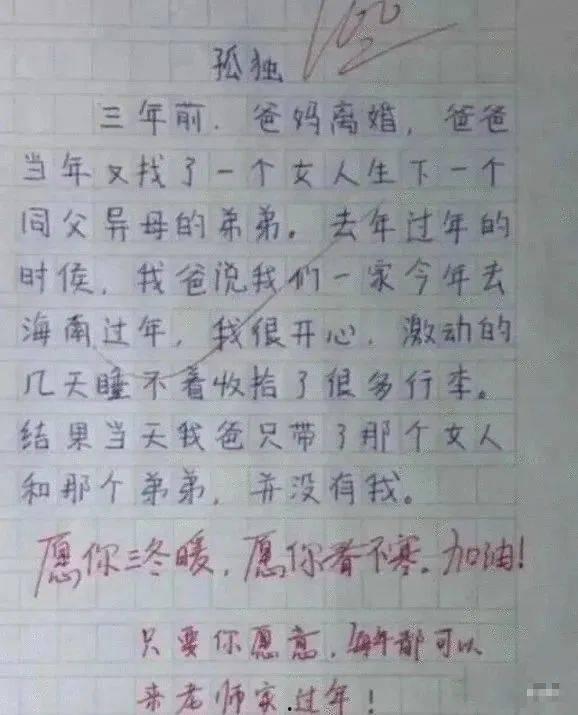 100
孤独
三年前．爸妈离婚，爸爸
当年又找了一个女人生下一个
同父异母的弟弟。去年过年的
时侯，我爸说我们一家今年去
海南过年，我很开心．激动的
几天睡不着收拾了很多行李。
结果当天我爸只带了那个女人
和那个弟弟，并没有我。
愿你三冬暖，愿你春不寒。加油！
只要你愿意，每年都可以
来老师家过年！